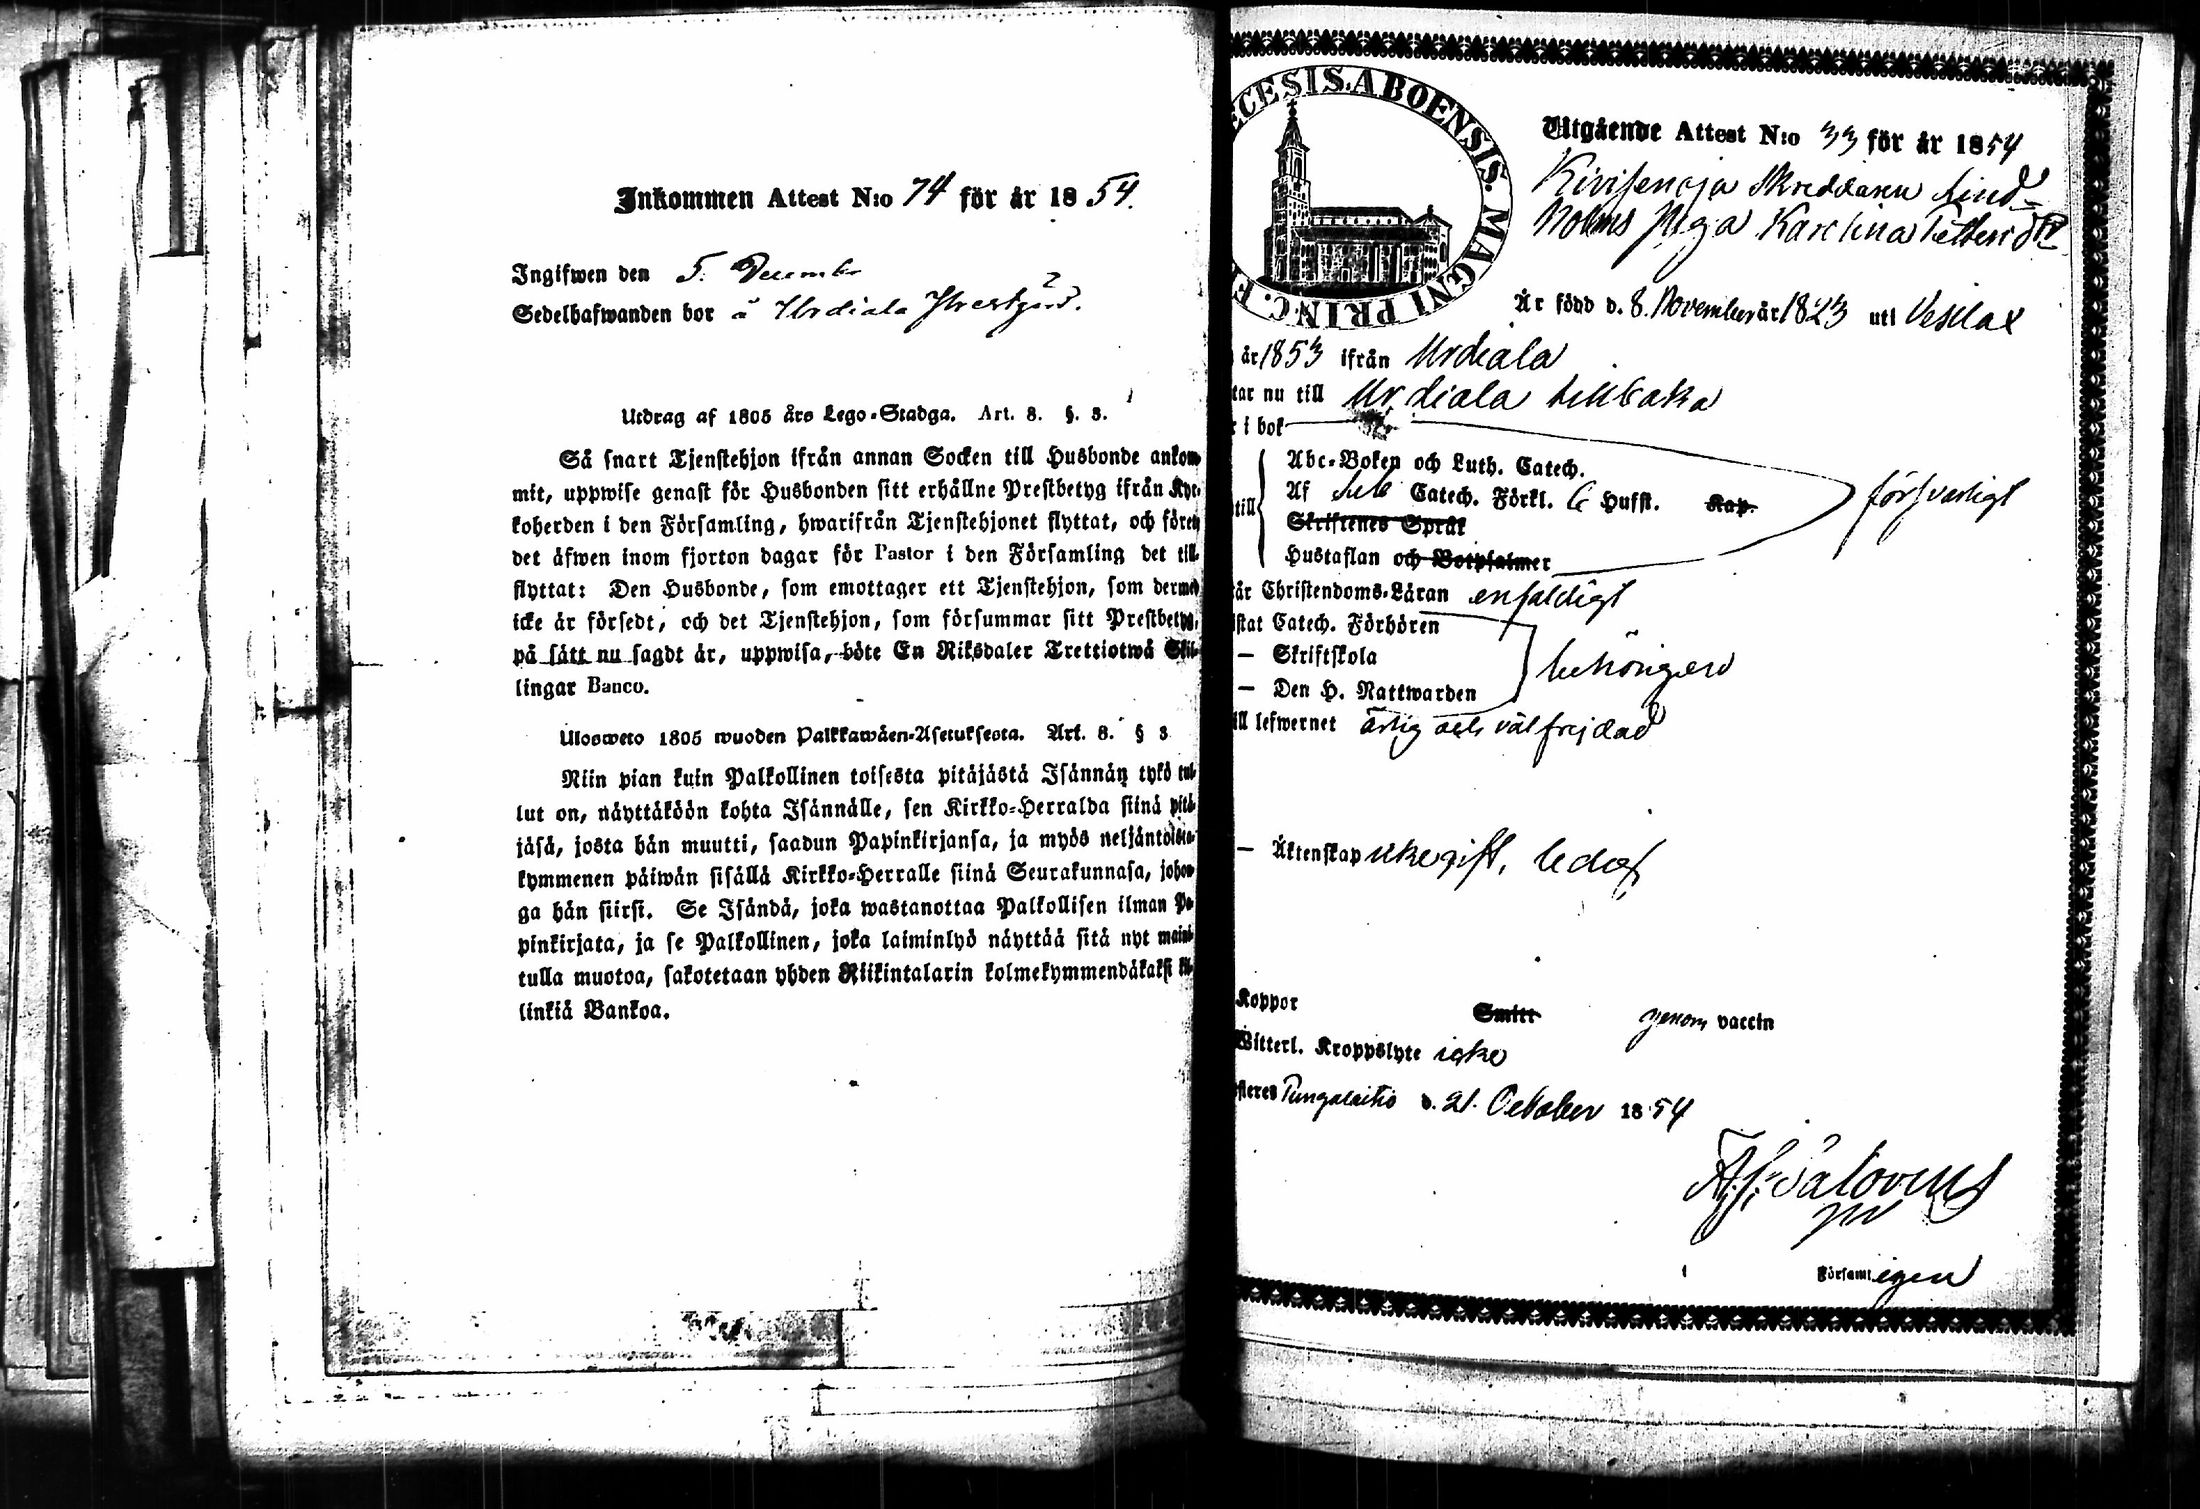 Inkommen Attest N:o 74 för år 1854.
Ingifwen den 5. December
Sedelhafwanden bor å Urdiala
Utdrag af 1805 års Lego-Stadga. Art. 8. §. 3.
Så snart Tjenstehjon ifrån annan Socken till Husbonde ankom-
mit, uppwise genast för Husbonden sitt erhållne Prestbetyg ifrån Kyr-
koherden i den Församling, hwarifrån Tjenstehjonet flyttat, och förete
det äfwen inom fjorton dagar för Pastor i den Församling det till-
flyttat: Den Husbonde, som emottager ett Tjenstehjon, som dermed
icke är försedt, och det Tjenstehjon, som försummar sitt Prestbetyg,
på sätt nu sagdt är, uppwisa, böte En Riksdaler Trettiotwå Skil-
lingar Banco.
Ulosweto 1805 wuoden Palkkawäen-Asetuksesta. Art. 8. § 3
Niin pian kuin Palkollinen toisesta pitäjästä Isännän tykö tul-
lut on, näyttäköön kohta Isännälle, sen Kirkko-Herralda siinä pitä-
jäsä, josta hän muutti, saadun Papinkirjansa, ja myös neljäntoista-
kymmenen päiwän sisällä Kirkko-Herralle siinä Seurakunnasa, johon-
ga hän siirsi. Se Isändä, joka wastanottaa Palkollisen ilman Pa-
pinkirjata, ja se Palkollinen, joka laiminlyö näyttää sitä nyt maini-
tulla muotoa, sakotetaan yhden Riikintalarin kolmekymmendäkaksi kil-
linkiä Bankoa.
ECESIS. ABOENSIS. MAGNI PRINC. F
Utgående Attest N:o 33 för år 1854
Kivisenoja Skreddaren Lind-
holms piga Karolina
Är född d. 8. November år 1823 uti Vesilax
år 1853 ifrån Urdiala
tar nu till Urdiala tillbaka
r i bok
Abc-Boken och Luth. Catech.
till Af Catech. Förkl. 6 Hufst. Kap. försvarligt
Skriftenes Språk
Hustaflan och Botpsalmer
år Christendoms-Läran enfaldigt
istat Catech. Förhören
— Skriftskola behörigen
— Den H. Nattwarden
ill lefwernet ärlig och välfrejdad
— Äktenskap icke gift, ledig
Koppor Smitt genom vaccin
Witterl. Kroppslyte icke
steres Pungalaitio d. 21. October 1854
Församl egen